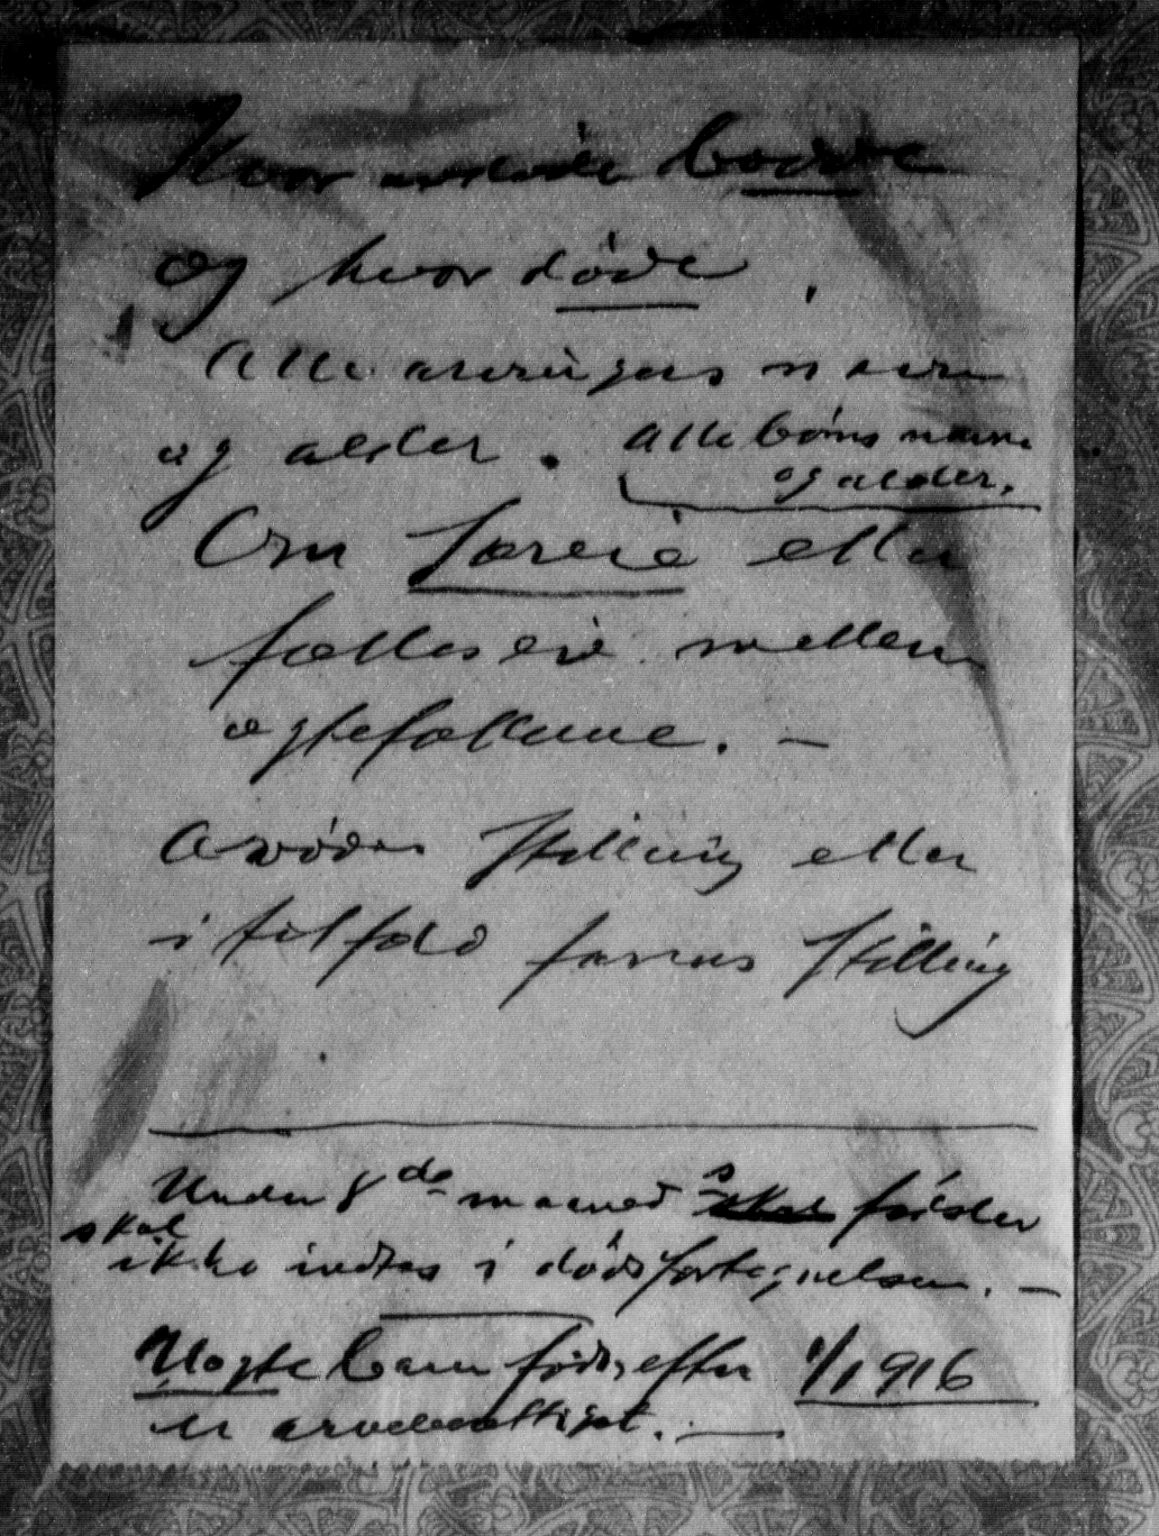 Hvor avdøde bodde
og hvor døde.
Alle arvingers navn
og alder. Alle børns navne
og alder.
Om særeie eller
fælleseie mellem
ægtefællerne. —
Avdødes Stilling eller
i tilfæld farens Stilling
Under 8de maaned s fødsler
skal
ikke indtas i dødsfortegnelsen. —
Uægte barn født efter 1/1 916
er arveberettiget. —